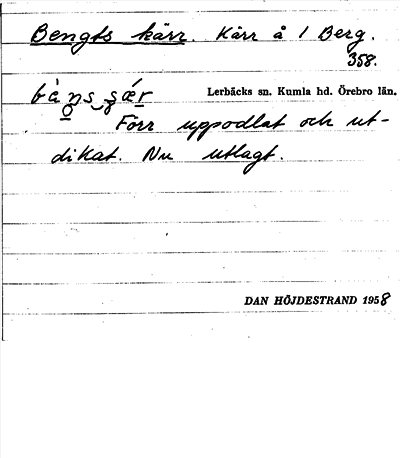 Bengts kärr. Kärr å 1 Berg.
358.
Lerbäcks sn. Kumla hd. Örebro län.
Förr uppodlat och ut-
dikat. Nu utlagt.
DAN HÖJDESTRAND 1958